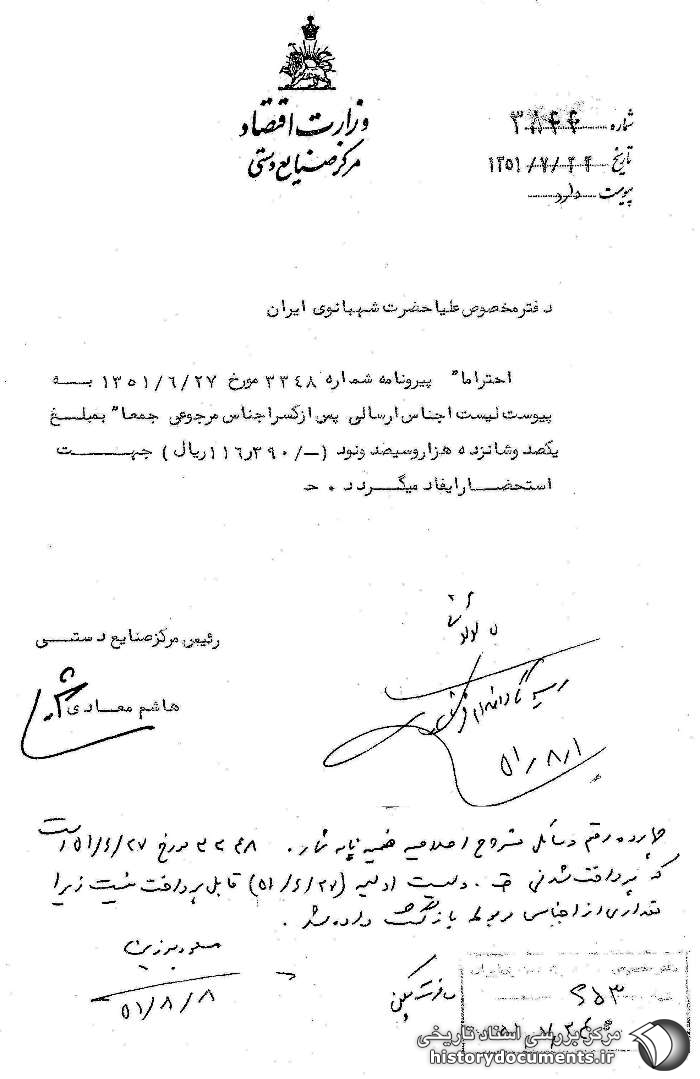 وزارت اقتصاد
مرکز صنایع دستی
شماره ۳۸۴۴
تاریخ ۱۳۵۱/۷/۲۴
پیوست دارد
دفتر مخصوص علیاحضرت شهبانوی ایران
احتراما" پیرونامه شماره ۳۳۴۸ مورخ ۱۳۵۱/۶/۲۷ به
پیوست لیست اجناس ارسالی پس از کسر اجناس مرجوعی جمعا" بمبلغ
یکصد و شانزده هزار و سیصد و نود (-/۱۱۶٫۳۹۰ ریال) جهت
استحضار ایفاد میگردد .
رئیس مرکز صنایع دستی
هاشم معادی
۵۱/۸/۱
چهارده رقم وسائل مشروح ضمیمه نامه شماره ۳۳۴۸ مورخ ۵۱/۶/۲۷ است
که پرداخت شدنی . و لیست اولیه (۵۱/۶/۲۷) قابل پرداخت نیست زیرا
مقداری از اجناس مربوط بازگشت داده شد .
۵۱/۸/۸
مرکز بررسی اسناد تاریخی
historydocuments.ir